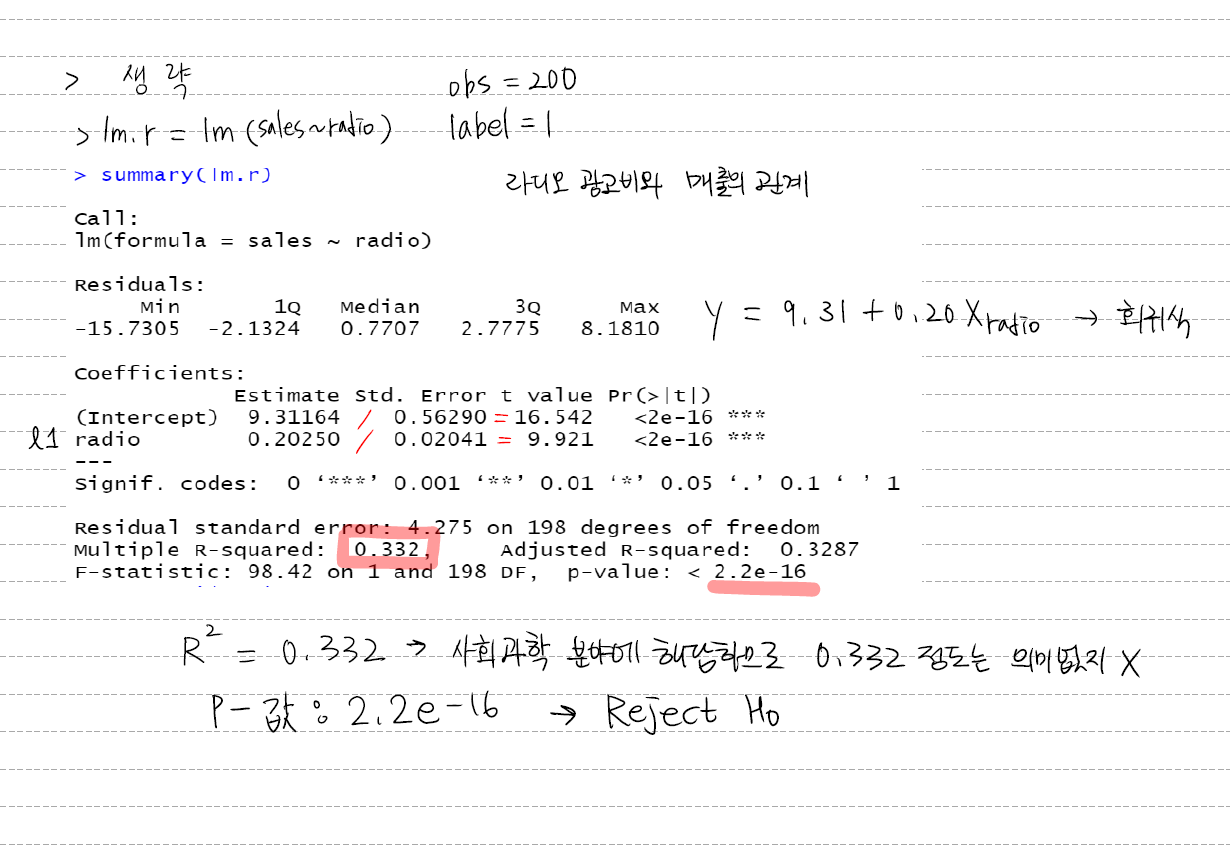 > 생략 obs = 200
> lm.r = lm (sales~radio) label = 1
> summary(lm.r)
라디오 광고비와 매출의 관계
Call:
lm(formula = sales ~ radio)
Residuals:
Min 1Q Median 3Q Max
-15.7305 -2.1324 0.7707 2.7775 8.1810
Y = 9.31 + 0.20 X radio → 회귀식
Coefficients:
Estimate Std. Error t value Pr(>|t|)
(Intercept) 9.31164 / 0.56290 = 16.542 <2e-16 ***
l1 radio 0.20250 / 0.02041 = 9.921 <2e-16 ***
---
Signif. codes: 0 ‘***’ 0.001 ‘**’ 0.01 ‘*’ 0.05 ‘.’ 0.1 ‘ ’ 1
Residual standard error: 4.275 on 198 degrees of freedom
Multiple R-squared: 0.332, Adjusted R-squared: 0.3287
F-statistic: 98.42 on 1 and 198 DF, p-value: < 2.2e-16
R² = 0.332 → 사회과학 분야에 해당하므로 0.332 정도는 의미없지 X
P-값 : 2.2e-16 → Reject H₀